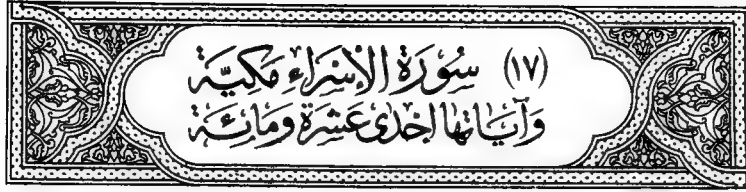 (١٧) سُورَةُ الْإِسْرَاءِ مَكِيَّةٌ
وَآيَاتُهَا إِحْدَى عَشْرَةَ وَمِائَةٌ